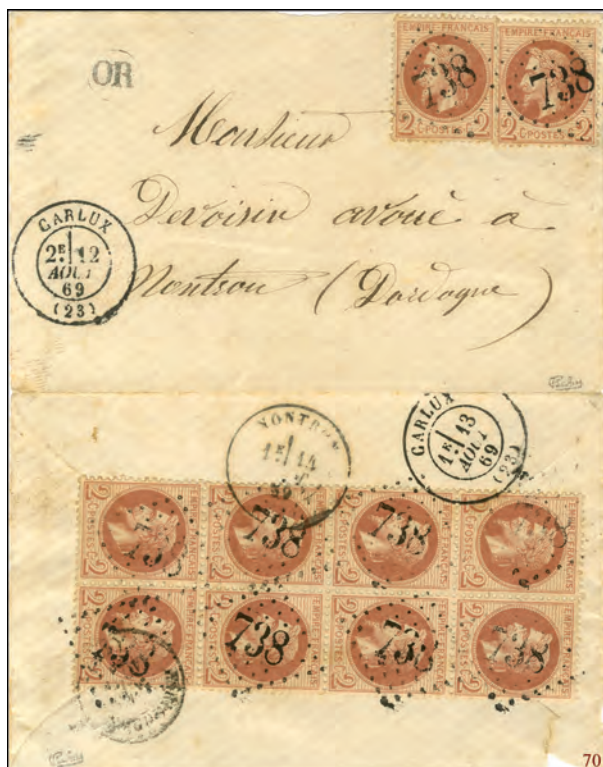 EMPIRE FRANÇAIS EMPIRE FRANÇAIS
OR
738 738
2 C POSTES 2 2 C POSTES 2
Monsieur
Devoisin avoué à
Nontron (Dordogne)
CARLUX
2E 12
AOUT
69
(23)
NONTRON
1E 14
69
CARLUX
1E 13
AOUT
69
(23)
738 738 738 738
738 738 738 738
70